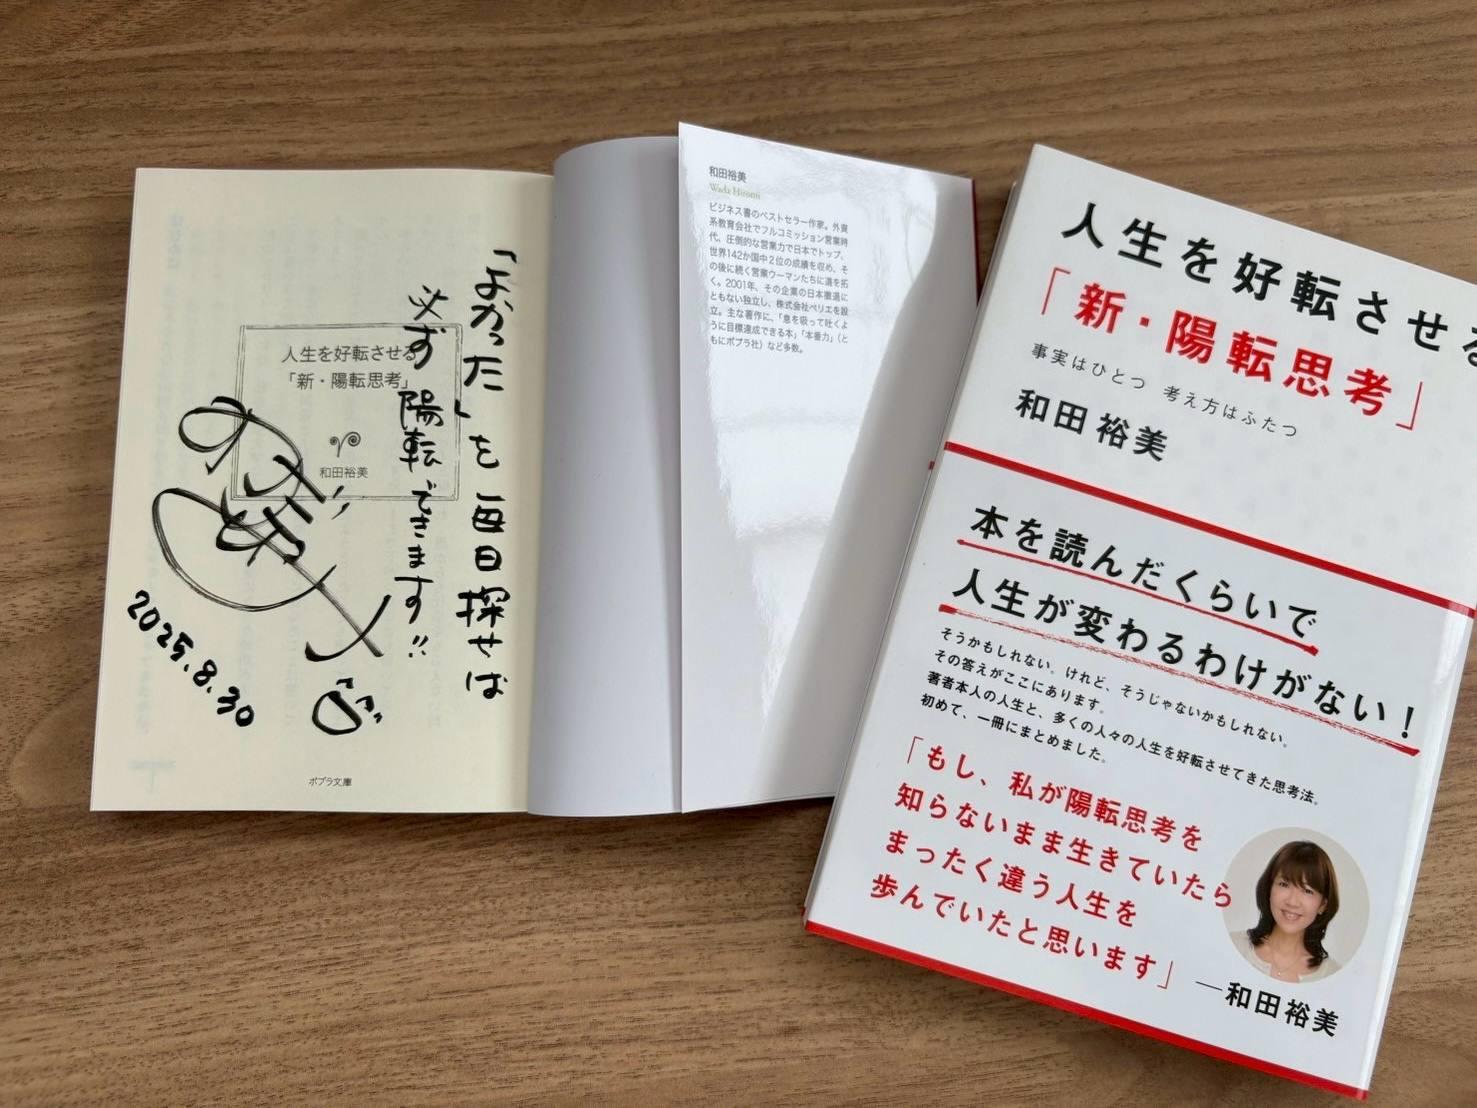 「よかった」を毎日探せば
必ず陽転できます!!
人生を好転させる
「新・陽転思考」
和田裕美
2025.8.30
ポプラ文庫
和田裕美
Wada Hiromi
ビジネス書のベストセラー作家。外資
系教育会社でフルコミッション営業時
代、圧倒的な営業力で日本でトップ、
世界142か国中2位の成績を収め、そ
の後に続く営業ウーマンたちに道を拓
く。2001年、その企業の日本撤退に
ともない独立し、株式会社ペリエを設
立。主な著作に、「息を吸って吐くよ
うに目標達成できる本」「本番力」(と
もにポプラ社)など多数。
人生を好転させる
「新・陽転思考」
事実はひとつ 考え方はふたつ
和田裕美
本を読んだくらいで
人生が変わるわけがない!
そうかもしれない。けれど、そうじゃないかもしれない。
その答えがここにあります。
著者本人の人生と、多くの人々の人生を好転させてきた思考法。
初めて、一冊にまとめました。
「もし、私が陽転思考を
知らないまま生きていたら
まったく違う人生を
歩んでいたと思います」
—和田裕美